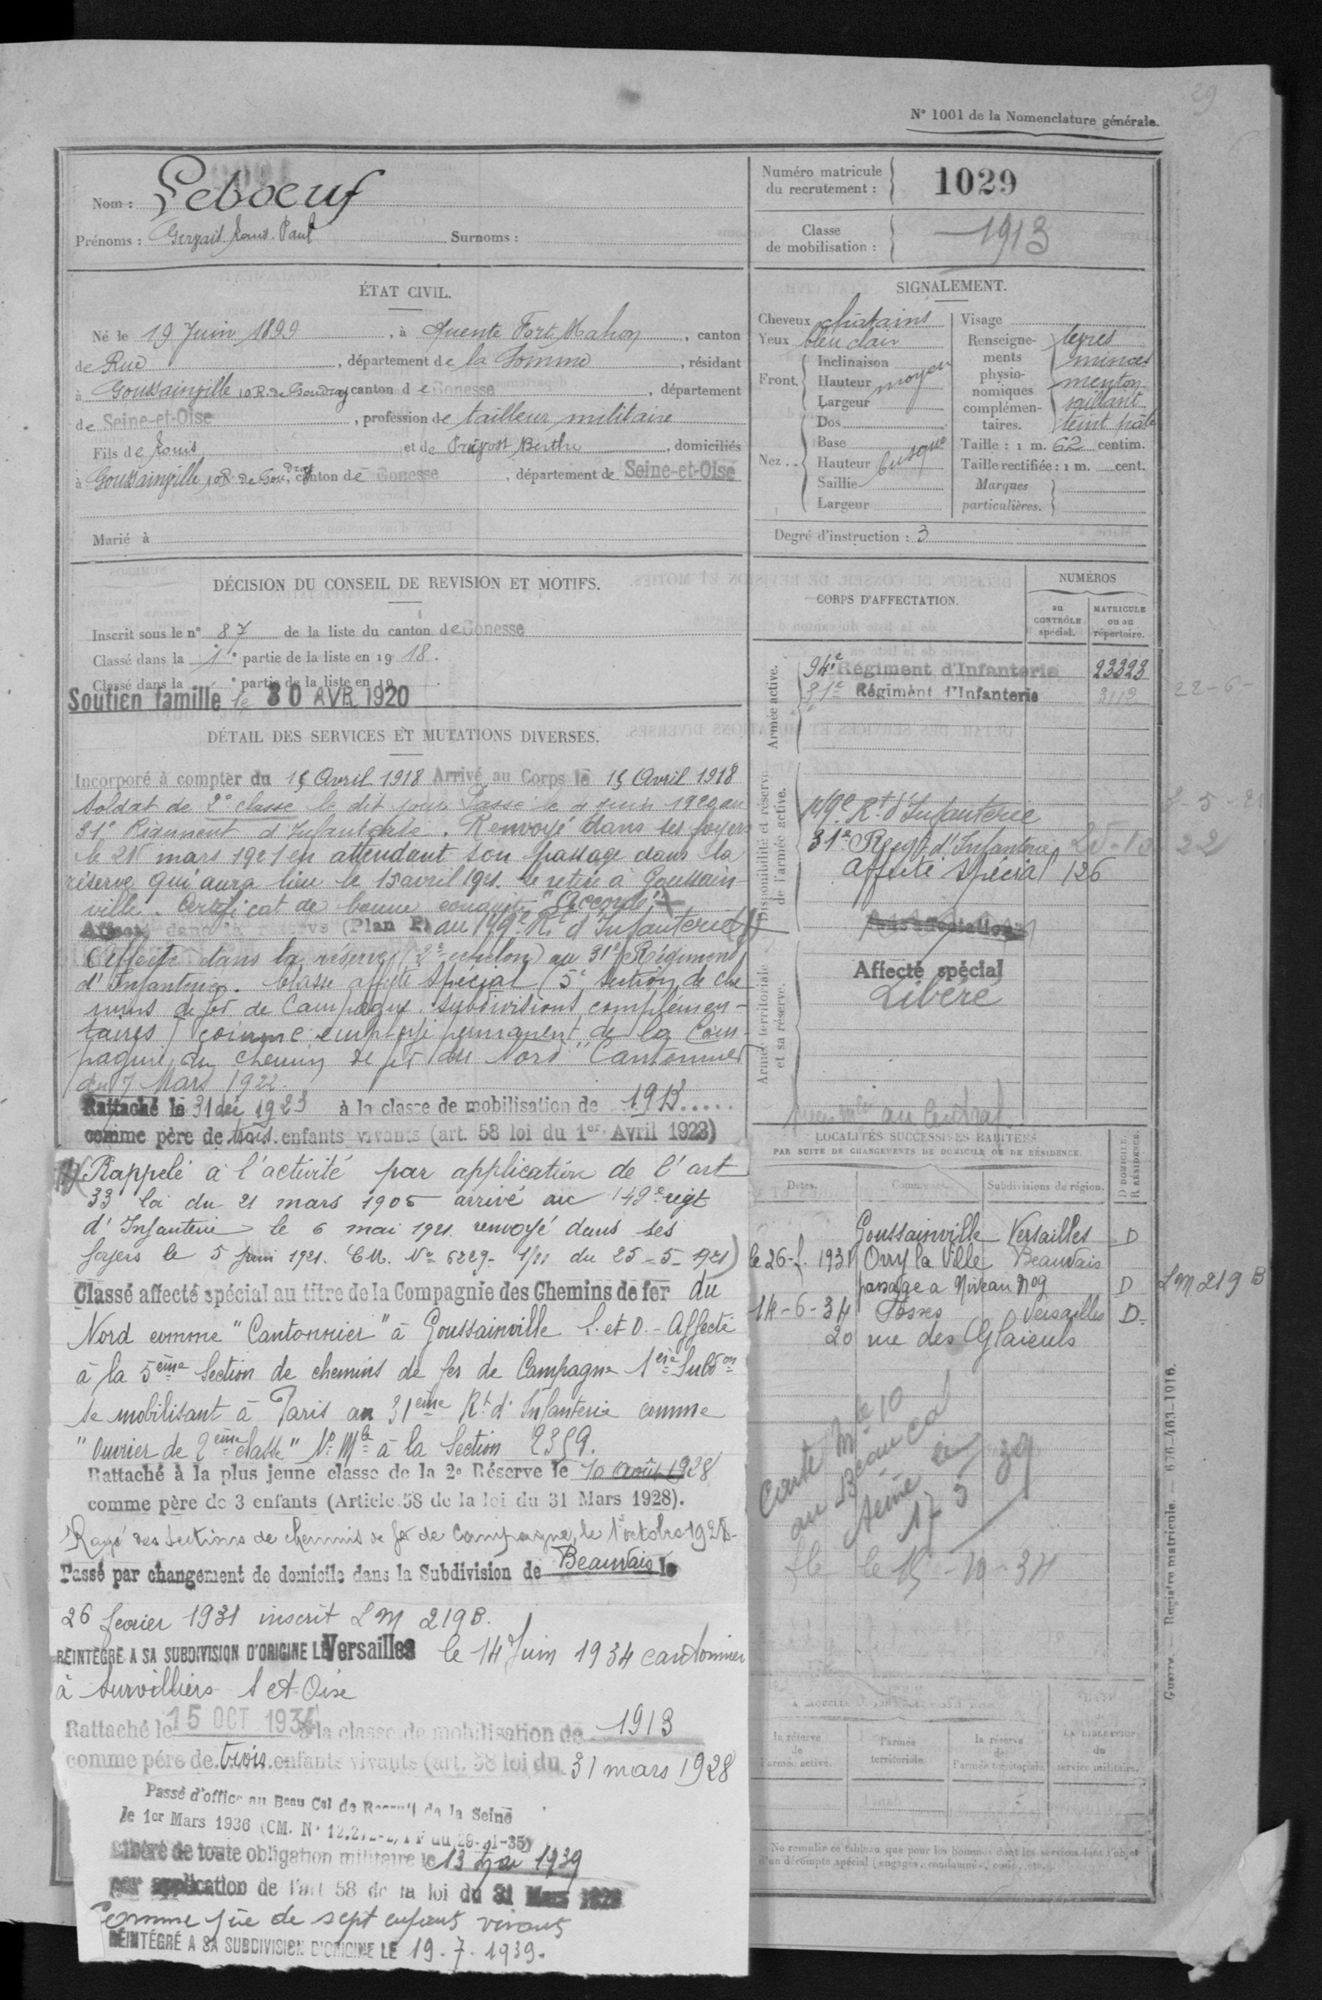 29
N° 1001 de la Nomenclature générale.
Nom : Leboeuf
Prénoms : Gervais Louis Paul Surnoms :
Numéro matricule du recrutement : 1029
Classe de mobilisation : 1913
ÉTAT CIVIL.
Né le 19 Juin 1899, à Quente Fort Mahon, canton
de Rue, département de la Somme, résidant
à Goussainville 10 R. de canton de Gonesse, département
de Seine-et-Oise, profession de tailleur militaire
Fils de Louis et de Prévost Berthe, domiciliés
à Goussainville, canton de Gonesse, département de Seine-et-Oise
Marié à
SIGNALEMENT.
Cheveux châtains
Yeux bleu clair
Front. Inclinaison
Hauteur moyen
Largeur
Nez .. Dos
Base
Hauteur busqué
Saillie
Largeur
Visage
Renseignements physionomiques complémentaires. lèvres minces menton saillant teint pâle
Taille : 1 m. 62 centim.
Taille rectifiée : 1 m. cent.
Marques particulières.
Degré d'instruction : 3
DÉCISION DU CONSEIL DE REVISION ET MOTIFS.
Inscrit sous le n° 87 de la liste du canton de Gonesse
Classé dans la 1re partie de la liste en 1918.
Classé dans la ° partie de la liste en 19
Soutien famille le 30 AVR 1920
DÉTAIL DES SERVICES ET MUTATIONS DIVERSES.
Incorporé à compter du 15 Avril 1918 Arrivé au Corps le 15 Avril 1918
Soldat de 2° classe le dit jour Passé le 4 juin 1920 au
31° Régiment d'Infanterie. Renvoyé dans ses foyers
le 21 mars 1921 en attendant son passage dans la
réserve qui aura lieu le 15 avril 1921. Se retire à Goussain-
ville. Certificat de bonne conduite "Accordé"
Affecté dans la réserve (Plan P) au 149e Rt d'Infanterie (1)
Affecté dans la réserve (2e échelon) au 31e Régiment
d'Infanterie. Classé affecté spécial (5e section de che
mins de fer de Campagne subdivisions complémen-
taires) comme employé permanent de la Com-
pagnie du chemin de fer du Nord "Cantonnier"
du 7 Mars 1922.
Rattaché le 31 déc 1923 à la classe de mobilisation de 1913
comme père de trois enfants vivants (art. 58 loi du 1er Avril 1923)
(1) Rappelé à l'activité par application de l'art
33 loi du 21 mars 1905 arrivé au 149e régt
d'Infanterie le 6 mai 1921 renvoyé dans ses
foyers le 5 juin 1921. C.M. No 6229- 1/11 du 25-5-1921)
Classé affecté spécial au titre de la Compagnie des Chemins de fer du
Nord comme "Cantonnier" à Goussainville S. et O. - Affecté
à la 5ème Section de chemins de fer de Campagne 1ère Subdon
se mobilisant à Paris au 31ème Rt d'Infanterie comme
"Ouvrier de 2ème classe" No Mle à la Section 2359.
Rattaché à la plus jeune classe de la 2e Réserve le 10 Août 1928
comme père de 3 enfants (Article 58 de la loi du 31 Mars 1928).
Rayé des sections de chemins de fer de Campagne, le 1er octobre 1928
Passé par changement de domicile dans la Subdivision de Beauvais le
26 fevrier 1931 inscrit L M 219 B.
REINTÉGRÉ A SA SUBDIVISION D'ORIGINE LE Versailles le 14 Juin 1934 cantonnier
à Survilliers S et Oise
Rattaché le 15 OCT 1934 à la classe de mobilisation de 1913
comme père de trois enfants vivants (art. 58 loi du 31 mars 1928
Passé d'office au Beau Cal de Recruit de la Seine
le 1er Mars 1936 (CM. N° 12.2
Libéré de toute obligation militaire le 13 Mai 1939
par application de l'art 58 de la loi du 31 Mars 1928
Comme père de sept enfants vivants
RÉINTÉGRÉ A SA SUBDIVISION D'ORIGINE LE 19.7.1939.
CORPS D'AFFECTATION.
NUMÉROS
au CONTRÔLE spécial.
MATRICULE ou au répertoire.
Armée active.
94e Régiment d'Infanterie 23323
31e Régiment d'Infanterie 3112 22-6-
Disponibilité et réserve de l'armée active.
149e Rt d'Infanterie
31e Regt d'Infanterie 22
Affecté spécial 126
Armée territoriale et sa réserve.
Sans affectation
Affecté spécial
Libéré
au Central
LOCALITÉS SUCCESSIVES HABITÉES
PAR SUITE DE CHANGEMENTS DE DOMICILE OU DE RÉSIDENCE.
Dates. Communes. Subdivisions de région. D DOMICILE. R RÉSIDENCE.
Goussainville Versailles D
le 26-2. 1931 Orry la Ville Beauvais
passage a Niveau No 9 D L M 219 B
14-6-34 Fosses Versailles D.
20 rue des Glaieuls
Carte Mle 10
au Beau Cal
Seine le
17 5 39
le 15-10-34
la réserve de l'armée active.
l'armée territoriale.
la réserve de l'armée territoriale.
LA LIBÉRATION du service militaire.
Ne remplir ce tableau que pour les hommes dont les services font l'objet
d'un décompte spécial (engagés, condamnés, omis, etc.).
Guerre. — Registre matricule. — 676-463-1916.